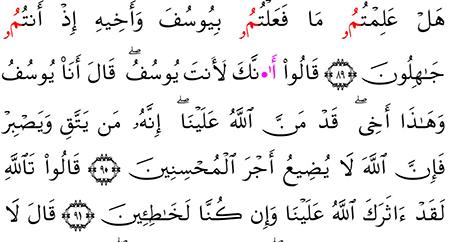 هَلْ عَلِمْتُمُۥ مَا فَعَلْتُمُۥ بِيُوسُفَ وَأَخِيهِ إِذْ أَنتُمُۥ
جَٰهِلُونَ ۝٨٩ قَالُوٓا۟ أَا۬نَّكَ لَأَنتَ يُوسُفُ ۖ قَالَ أَنَا۠ يُوسُفُ
وَهَٰذَآ أَخِى ۖ قَدْ مَنَّ ٱللَّهُ عَلَيْنَآ ۖ إِنَّهُۥ مَن يَتَّقِ وَيَصْبِرْ
فَإِنَّ ٱللَّهَ لَا يُضِيعُ أَجْرَ ٱلْمُحْسِنِينَ ۝٩٠ قَالُوا۟ تَٱللَّهِ
لَقَدْ ءَاثَرَكَ ٱللَّهُ عَلَيْنَا وَإِن كُنَّا لَخَٰطِـِٔينَ ۝٩١ قَالَ لَا